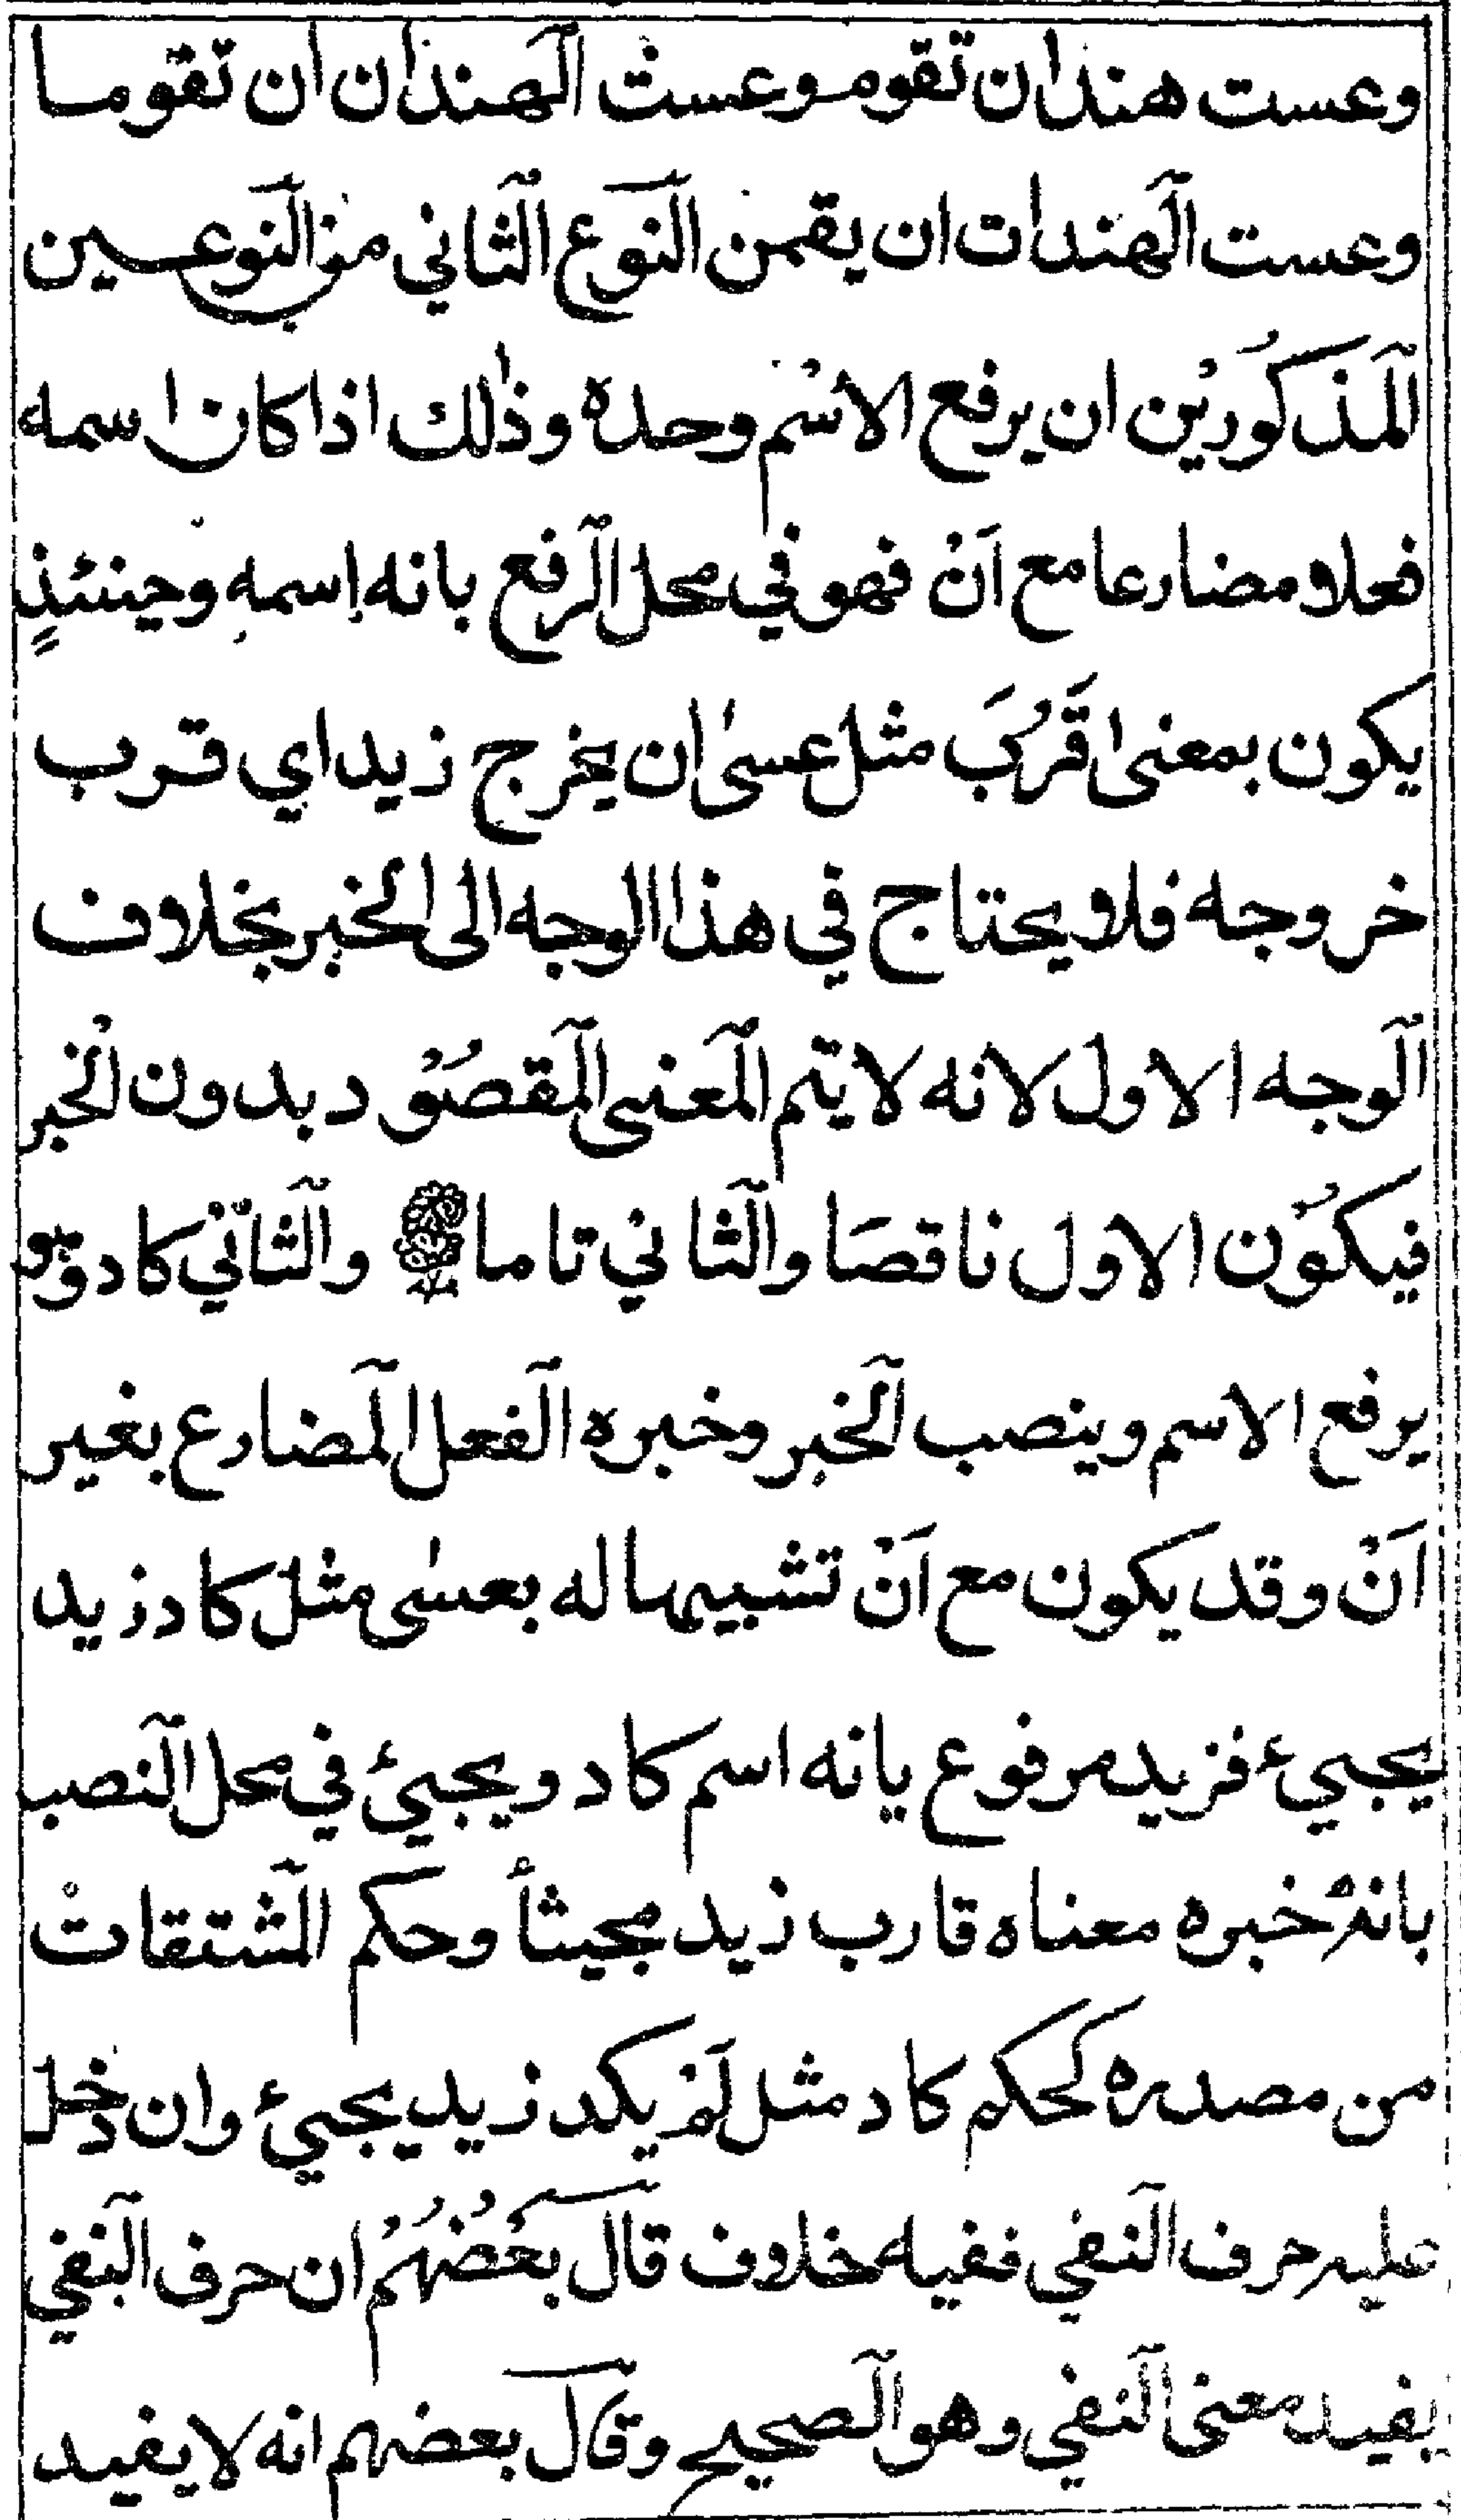 وعست هند ان تقوم وعست الهندان ان تقوما
وعست الهندات ان يقمن النوع الثاني من النوعين
المذكورين ان يرفع الاسم وحده وذلك اذا كان اسمه
فعلا مضارعا مع اَنْ فهو في محل الرفع بانه اِسمه وحينئذٍ
يكون بمعنى قَرُبَ مثل عسىٰ ان يخرج زيد اي قرب
خروجه فلا يحتاج في هذا الوجه الى الخبر بخلاف
الوجه الاول لانه لا يتم المعنى المقصُوْد بدون الخبر
فيكُون الاول ناقصَا والثاني تاما والثاني كاد وهو
يرفع الاسم وينصب الخبر وخبره الفعل المضارع بغير
اَنْ وقد يكون مع اَنْ تشبيها له بعسٰى مثل كاد زيد
يجيء فزيد مرفوع بانه اسم كاد ويجيئ في محل النصب
بانهٗ خبره معناه قارب زيد مجيئاً وحكم المشتقات
من مصدره كحكم كاد مثل لَمْ يكد زيد يجيئ وان دخل
عليه حرف النفي ففيه خلاف قال بَعْضُهُمْ ان حرف النفي
يفيد معنى النفي وهو الصحيح وقال بعضهم انه لا يفيد